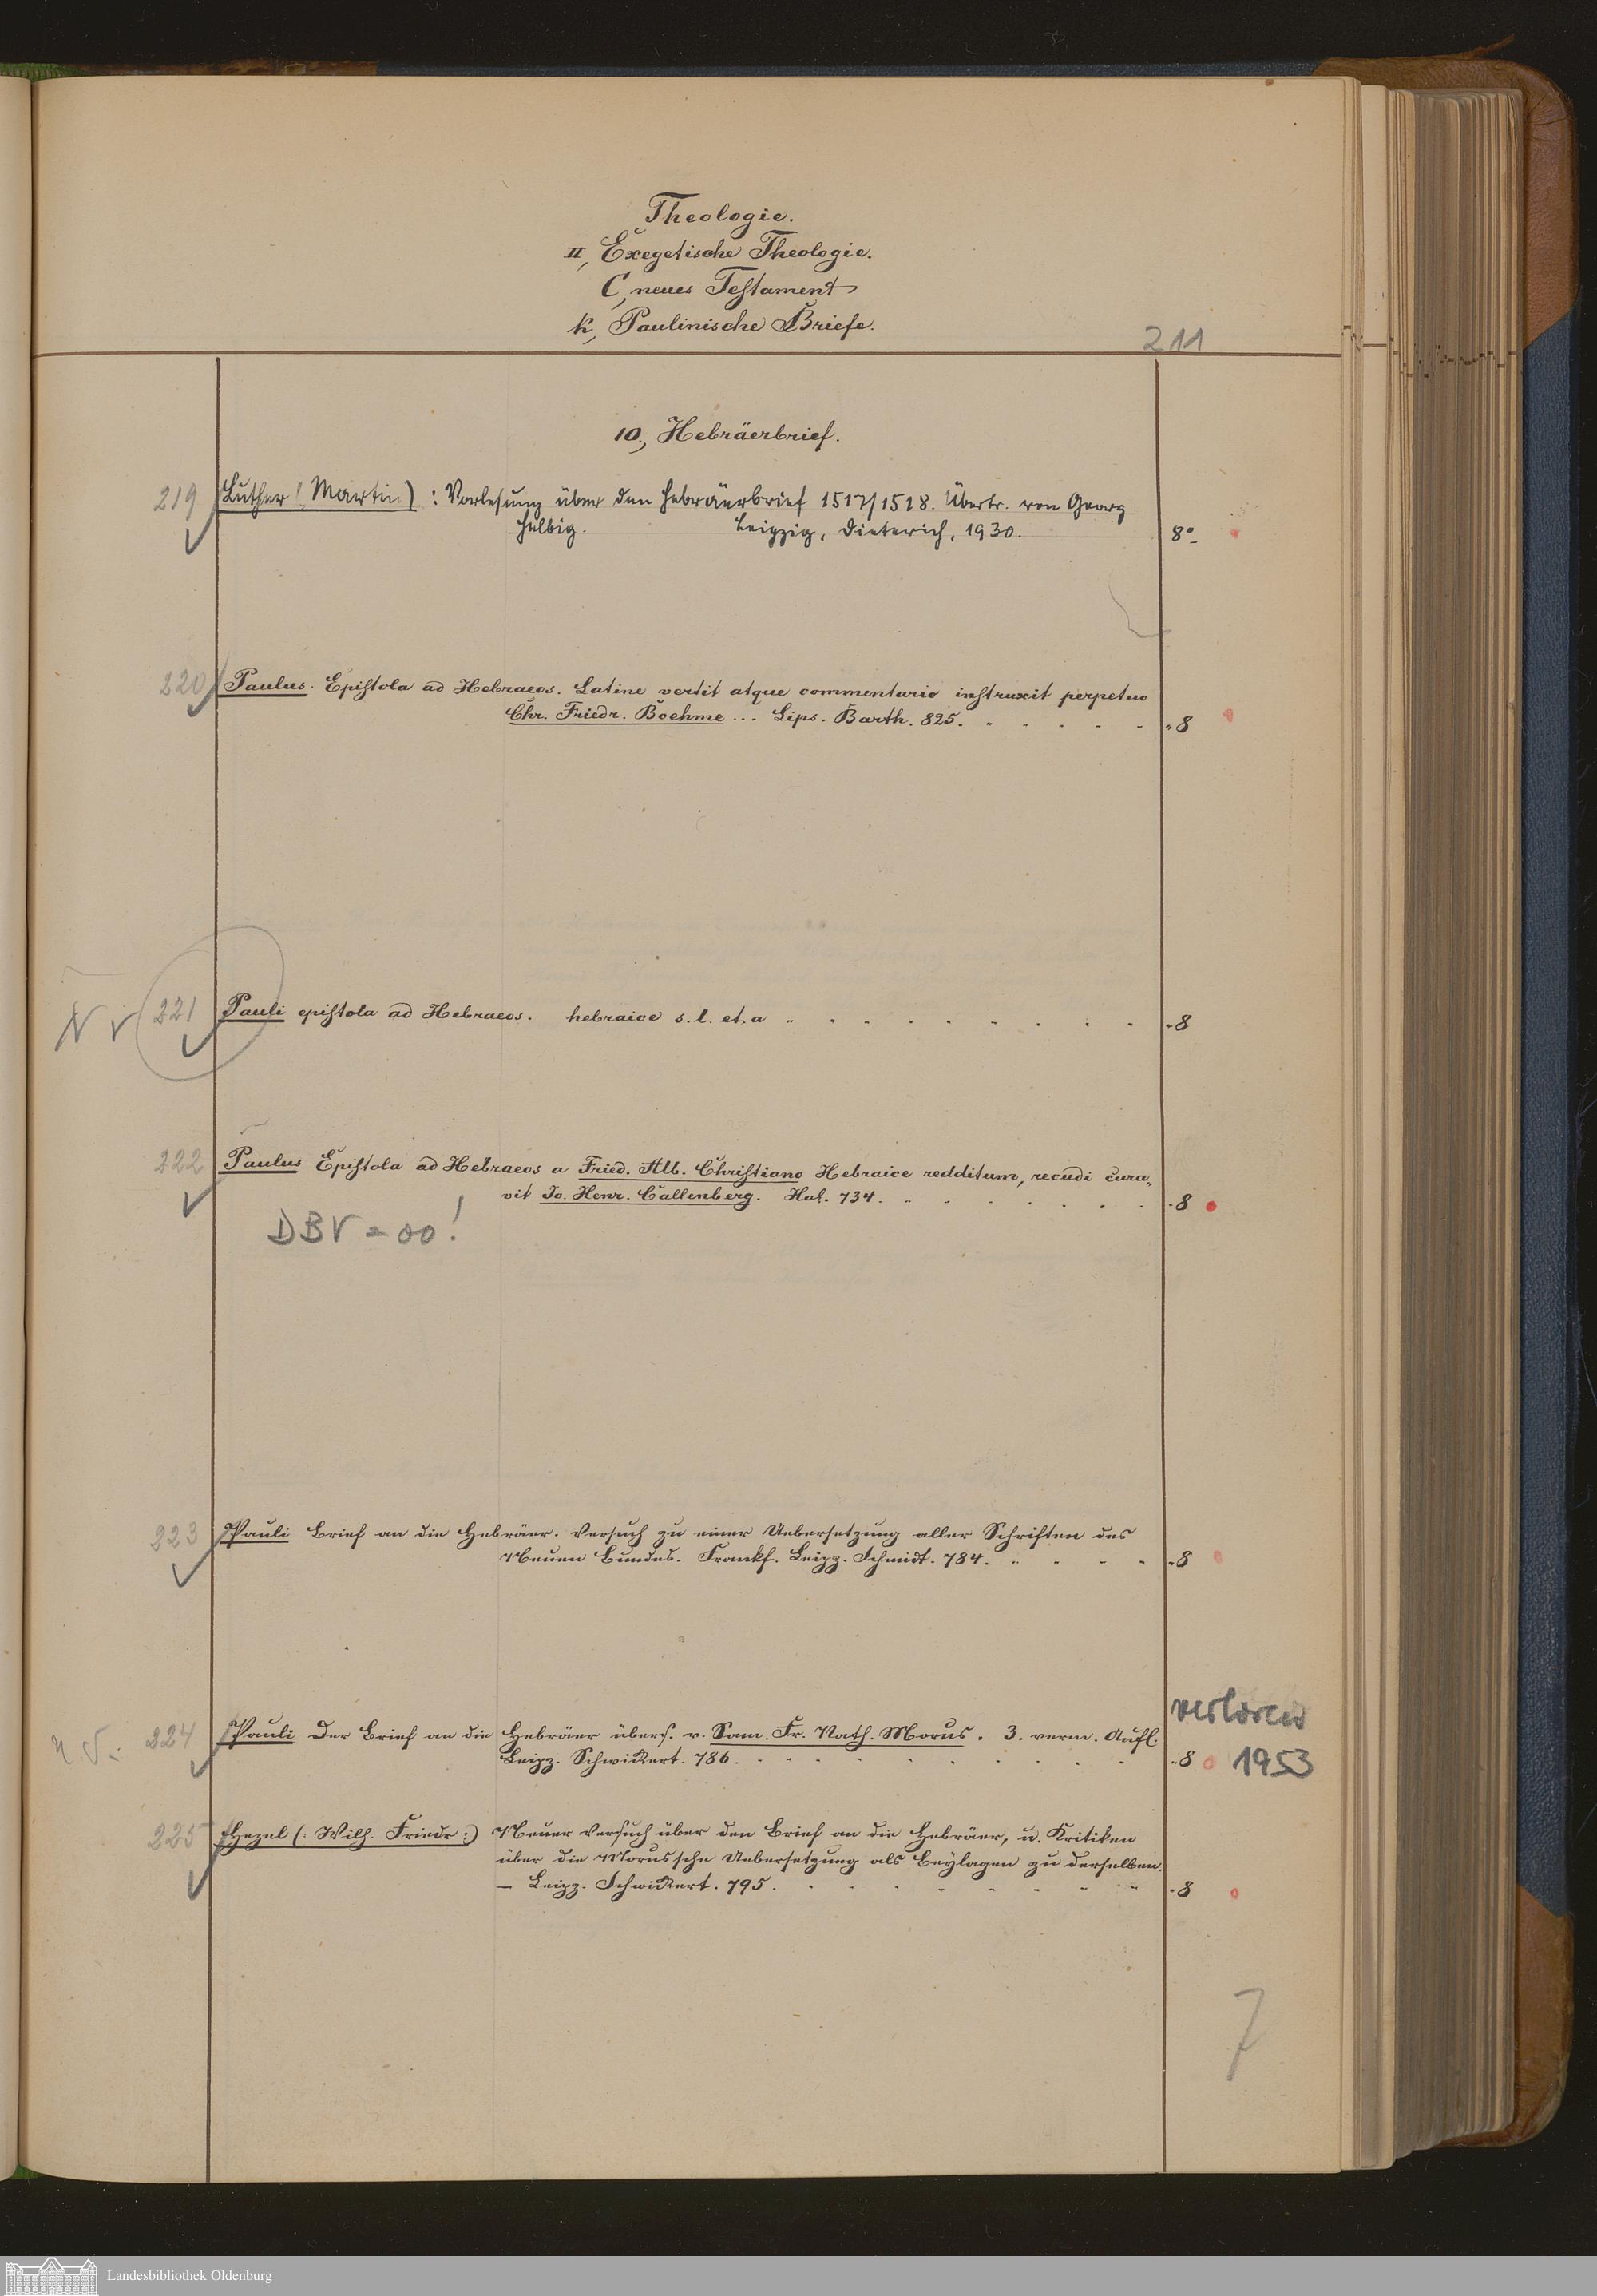 Theologie.
II, Exegetische Theologie.
C, neues Testament
k, Paulinische Briefe.
211
10., Hebräerbrief.
219 Luther (Martin) : Vorlesung über den Hebräerbrief 1517/1518. Übertr. von Georg
Helbig. Leipzig, Dieterich, 1930. 8°
220 Paulus. Epistola ad Hebraeos. Latine vertit atque commentario instruxit perpetuo
Chr. Friedr. Boehme ... Lips. Barth. 825. 8
221 Pauli epistola ad Hebraeos. hebraice s. l. et. a 8
222 Paulus Epistola ad Hebraeos a Fried. Alb. Christiano Hebraice redditum, recudi cura„
vit Jo. Henr. Callenberg. Hal. 734. 8
DBV = 00!
223 Pauli Brief an die Hebräer. Versuch zu einer Uebersetzung aller Schriften des
Neuen Bundes. Frankf. Leipz. Schmidt. 784. 8
verloren
224 Pauli Der Brief an die Hebräer übers. v. Sam. Fr. Nath. Morus. 3. verm. Aufl.
Leipz. Schwickert. 786. 8 1953
225 Hezel (: Wilh. Friedr :) Neuer Versuch über den Brief an die Hebräer, u. Kritiken
über die Morussche Uebersetzung als Beylagen zu derselben.
– Leipz. Schwickert. 795. 8
7
Landesbibliothek Oldenburg